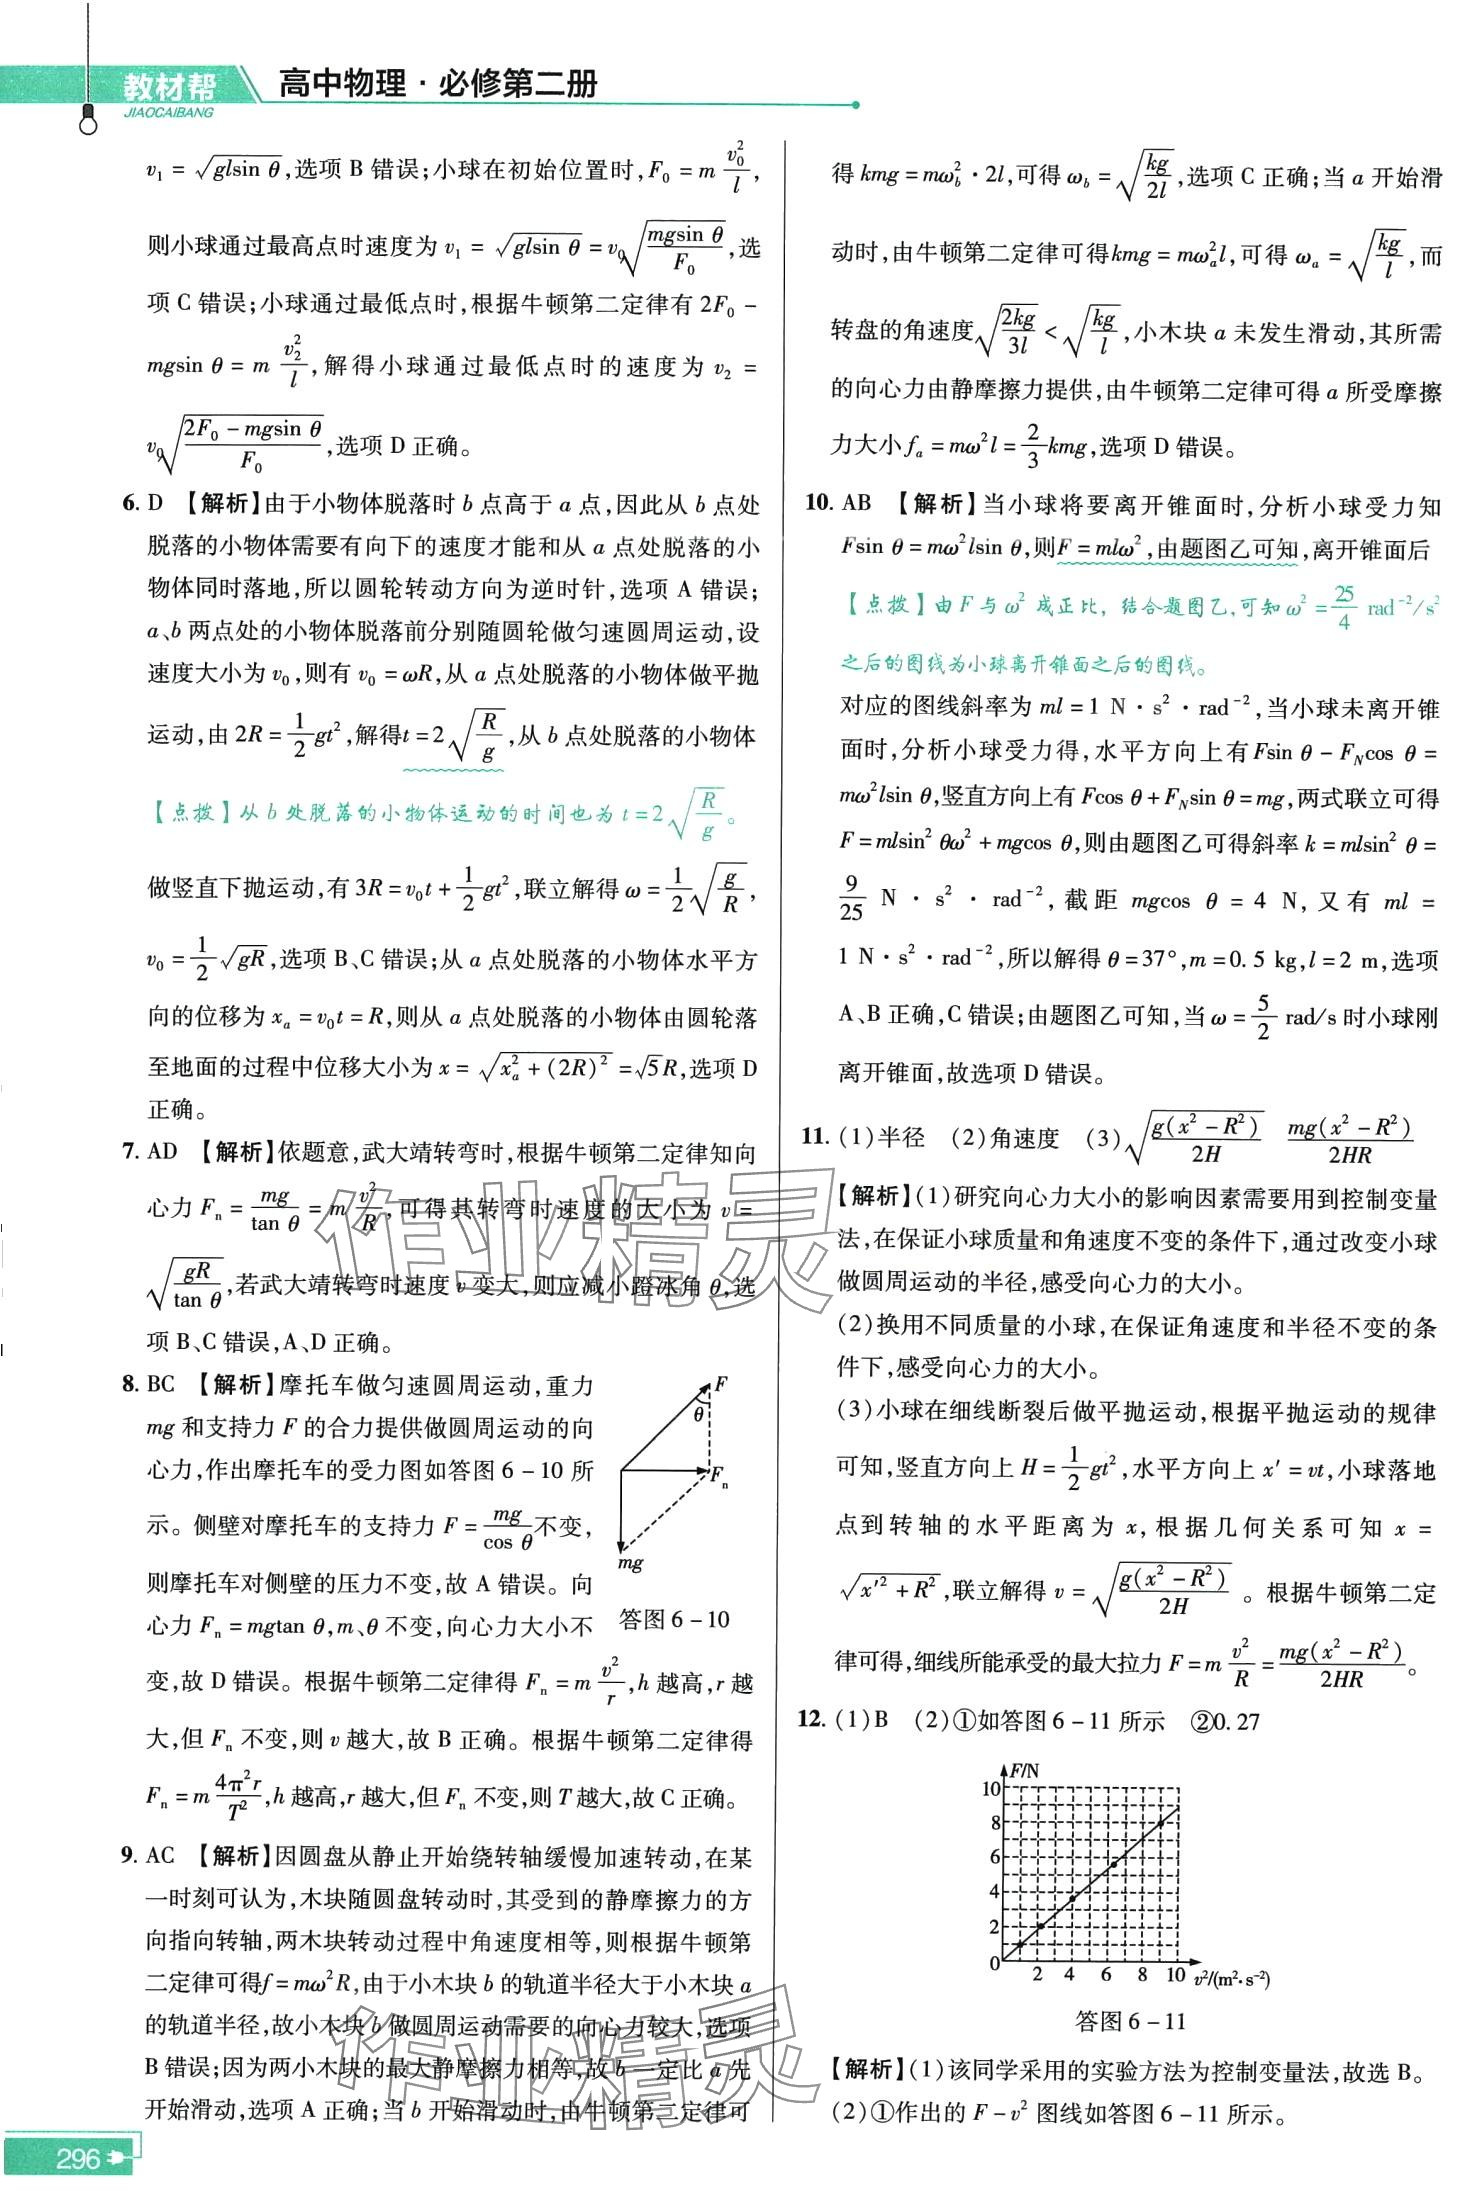 教材帮
JIAOCAIBANG
高中物理·必修第二册
v₁=√(glsin θ),选项 B 错误;小球在初始位置时,F₀=m v₀²/l,
则小球通过最高点时速度为 v₁=√(glsin θ)=v₀√(mgsin θ/F₀),选
项 C 错误;小球通过最低点时,根据牛顿第二定律有 2F₀-
mgsin θ=m v₂²/l,解得小球通过最低点时的速度为 v₂=
v₀√((2F₀-mgsin θ)/F₀),选项 D 正确。
6. D 【解析】由于小物体脱落时 b 点高于 a 点,因此从 b 点处
脱落的小物体需要有向下的速度才能和从 a 点处脱落的小
物体同时落地,所以圆轮转动方向为逆时针,选项 A 错误;
a、b 两点处的小物体脱落前分别随圆轮做匀速圆周运动,设
速度大小为 v₀,则有 v₀=ωR,从 a 点处脱落的小物体做平抛
运动,由 2R=1/2 gt²,解得t=2√(R/g),从 b 点处脱落的小物体
【点拨】从 b 处脱落的小物体运动的时间也为 t=2√(R/g)。
做竖直下抛运动,有 3R=v₀t+1/2 gt²,联立解得 ω=1/2√(g/R),
v₀=1/2√(gR),选项 B、C 错误;从 a 点处脱落的小物体水平方
向的位移为 xₐ=v₀t=R,则从 a 点处脱落的小物体由圆轮落
至地面的过程中位移大小为 x=√(xₐ²+(2R)²)=√5R,选项 D
正确。
7. AD 【解析】依题意,武大靖转弯时,根据牛顿第二定律知向
心力 Fₙ=mg/tan θ=m v²/R,可得其转弯时速度的大小为 v=
√(gR/tan θ),若武大靖转弯时速度 v 变大,则应减小蹬冰角 θ,选
项 B、C 错误,A、D 正确。
8. BC 【解析】摩托车做匀速圆周运动,重力
mg 和支持力 F 的合力提供做圆周运动的向
心力,作出摩托车的受力图如答图 6-10 所
示。侧壁对摩托车的支持力 F=mg/cos θ不变,
则摩托车对侧壁的压力不变,故 A 错误。向
心力 Fₙ=mgtan θ,m、θ 不变,向心力大小不
变,故 D 错误。根据牛顿第二定律得 Fₙ=m v²/r,h 越高,r 越
大,但 Fₙ 不变,则 v 越大,故 B 正确。根据牛顿第二定律得
Fₙ=m 4π²r/T²,h 越高,r 越大,但 Fₙ 不变,则 T 越大,故 C 正确。
F
θ
Fₙ
mg
答图 6-10
9. AC 【解析】因圆盘从静止开始绕转轴缓慢加速转动,在某
一时刻可认为,木块随圆盘转动时,其受到的静摩擦力的方
向指向转轴,两木块转动过程中角速度相等,则根据牛顿第
二定律可得f=mω²R,由于小木块 b 的轨道半径大于小木块 a
的轨道半径,故小木块 b 做圆周运动需要的向心力较大,选项
B 错误;因为两小木块的最大静摩擦力相等,故 b 一定比 a 先
开始滑动,选项 A 正确;当 b 开始滑动时,由牛顿第二定律可
得 kmg=mω_b²·2l,可得 ω_b=√(kg/2l),选项 C 正确;当 a 开始滑
动时,由牛顿第二定律可得kmg=mωₐ²l,可得 ωₐ=√(kg/l),而
转盘的角速度√(2kg/3l)<√(kg/l),小木块 a 未发生滑动,其所需
的向心力由静摩擦力提供,由牛顿第二定律可得 a 所受摩擦
力大小fₐ=mω²l=2/3 kmg,选项 D 错误。
10. AB 【解析】当小球将要离开锥面时,分析小球受力知
Fsin θ=mω²lsin θ,则F=mlω²,由题图乙可知,离开锥面后
【点拨】由 F 与 ω² 成正比,结合题图乙,可知 ω²=25/4 rad⁻²/s²
之后的图线为小球离开锥面之后的图线。
对应的图线斜率为 ml=1 N·s²·rad⁻²,当小球未离开锥
面时,分析小球受力得,水平方向上有Fsin θ-F_Ncos θ=
mω²lsin θ,竖直方向上有Fcos θ+F_Nsin θ=mg,两式联立可得
F=mlsin² θω²+mgcos θ,则由题图乙可得斜率 k=mlsin² θ=
9/25 N·s²·rad⁻²,截距 mgcos θ=4 N,又有 ml=
1 N·s²·rad⁻²,所以解得 θ=37°,m=0.5 kg,l=2 m,选项
A、B 正确,C 错误;由题图乙可知,当 ω=5/2 rad/s 时小球刚
离开锥面,故选项 D 错误。
11. (1)半径 (2)角速度 (3)√(g(x²-R²)/2H) mg(x²-R²)/2HR
【解析】(1)研究向心力大小的影响因素需要用到控制变量
法,在保证小球质量和角速度不变的条件下,通过改变小球
做圆周运动的半径,感受向心力的大小。
(2)换用不同质量的小球,在保证角速度和半径不变的条
件下,感受向心力的大小。
(3)小球在细线断裂后做平抛运动,根据平抛运动的规律
可知,竖直方向上 H=1/2 gt²,水平方向上 x′=vt,小球落地
点到转轴的水平距离为 x,根据几何关系可知 x=
√(x′²+R²),联立解得 v=√(g(x²-R²)/2H)。根据牛顿第二定
律可得,细线所能承受的最大拉力 F=m v²/R=mg(x²-R²)/2HR。
12. (1)B (2)①如答图 6-11 所示 ②0.27
F/N
10
8
6
4
2
0
2 4 6 8 10 v²/(m²·s⁻²)
答图 6-11
【解析】(1)该同学采用的实验方法为控制变量法,故选 B。
(2)①作出的 F-v² 图线如答图 6-11 所示。
296
作业精灵
作业精灵